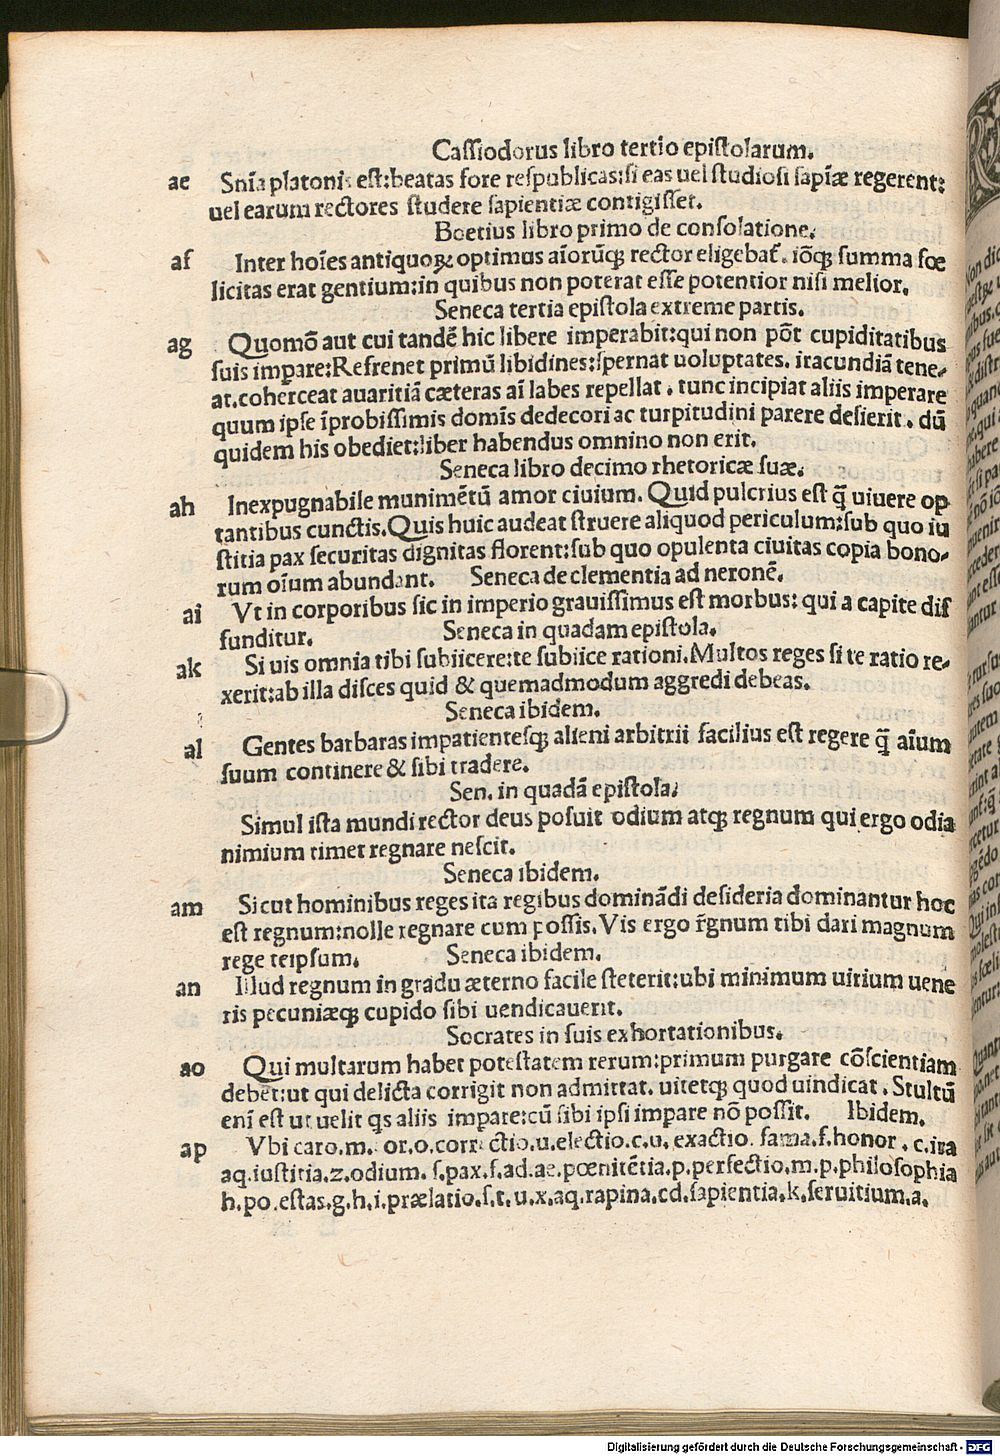 Cassiodorus libro tertio epistolarum.
ae Snīa platonis est:beatas fore respublicas:si eas uel studiosi sapīæ regerent:
uel earum rectores studere sapientiæ contigisset.
Boetius libro primo de consolatione.
af Inter hoīes antiquoꝝ optimus aīorūqꝫ rector eligebat̄. iōqꝫ summa fœ
licitas erat gentium:in quibus non poterat esse potentior nisi melior.
Seneca tertia epistola extreme partis.
ag Quomō aut cui tandē hic libere imperabit:qui non pōt cupiditatibus
suis impare:Refrenet primū libidines:spernat uoluptates. iracundiā tene-
at.coherceat auaritiā cæteras aī labes repellat. tunc incipiat aliis imperare
quum ipse īprobissimis domīs dedecori ac turpitudini parere desierit. dū
quidem his obediet:liber habendus omnino non erit.
Seneca libro decimo rhetoricæ suæ.
ah Inexpugnabile munimētū amor ciuium. Quid pulcrius est q̄ uiuere op
tantibus cunctis.Quis huic audeat struere aliquod periculum:sub quo iu
stitia pax securitas dignitas florent:sub quo opulenta ciuitas copia bono-
rum oīum abundant. Seneca de clementia ad neronē.
ai Vt in corporibus sic in imperio grauissimus est morbus: qui a capite dif
funditur. Seneca in quadam epistola.
ak Si uis omnia tibi subiicere:te subiice rationi.Multos reges si te ratio re-
xerit:ab illa disces quid & quemadmodum aggredi debeas.
Seneca ibidem.
al Gentes barbaras impatientesqꝫ alieni arbitrii facilius est regere q̄ aīum
suum continere & sibi tradere.
Sen. in quadā epistola.
Simul ista mundi rector deus posuit odium atqꝫ regnum qui ergo odia
nimium timet regnare nescit.
Seneca ibidem.
am Sicut hominibus reges ita regibus domināđi desideria dominantur hoc
est regnum:nolle regnare cum possis.Vis ergo r̄gnum tibi dari magnum
rege teipsum. Seneca ibidem.
an Illud regnum in gradu æterno facile steterit:ubi minimum uirium uene
ris pecuniæqꝫ cupido sibi uendicauerit.
Socrates in suis exhortationibus.
ao Qui multarum habet potestatem rerum:primum purgare cōscientiam
debet:ut qui delicta corrigit non admittat. uitetqꝫ quod uindicat. Stultū
enī est ut uelit qs aliis impare:cū sibi ipsi impare nō possit. Ibidem.
ap Vbi caro.m. or.o.correctio.u.electio.c.u. exactio. fama.f.honor. c.ira
aq.iustitia.z.odium. s.pax.f.ad.ae.pœnitētia.p.perfectio.m.p.philosophia
h.potestas.g.h.i.prælatio.s.t.u.x.aq.rapina.cd.sapientia.k.seruitium.a.
Digitalisierung gefördert durch die Deutsche Forschungsgemeinschaft - DFG